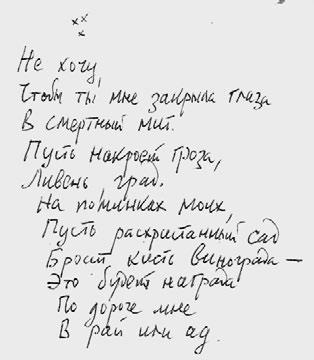 xxx
Не хочу,
Чтобы ты мне закрыла глаза
В смертный миг.
Пусть накроет гроза,
Ливень, град.
На поминках моих,
Пусть расхристанный сад
Бросит кисть винограда —
Это будет награда
По дороге мне
В рай или ад.